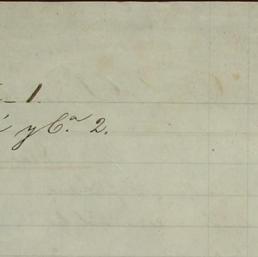 - 1.
y C.ª 2.